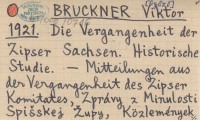 BRUCKNER Viktor
1921. Die Vergangenheit der
Zipser Sachsen. Historische
Studie. — Mitteilungen aus
der Vergangenheit des Zipser
Komitates, Zprávy z Minulosti
Spišskej Župy, Közlemények